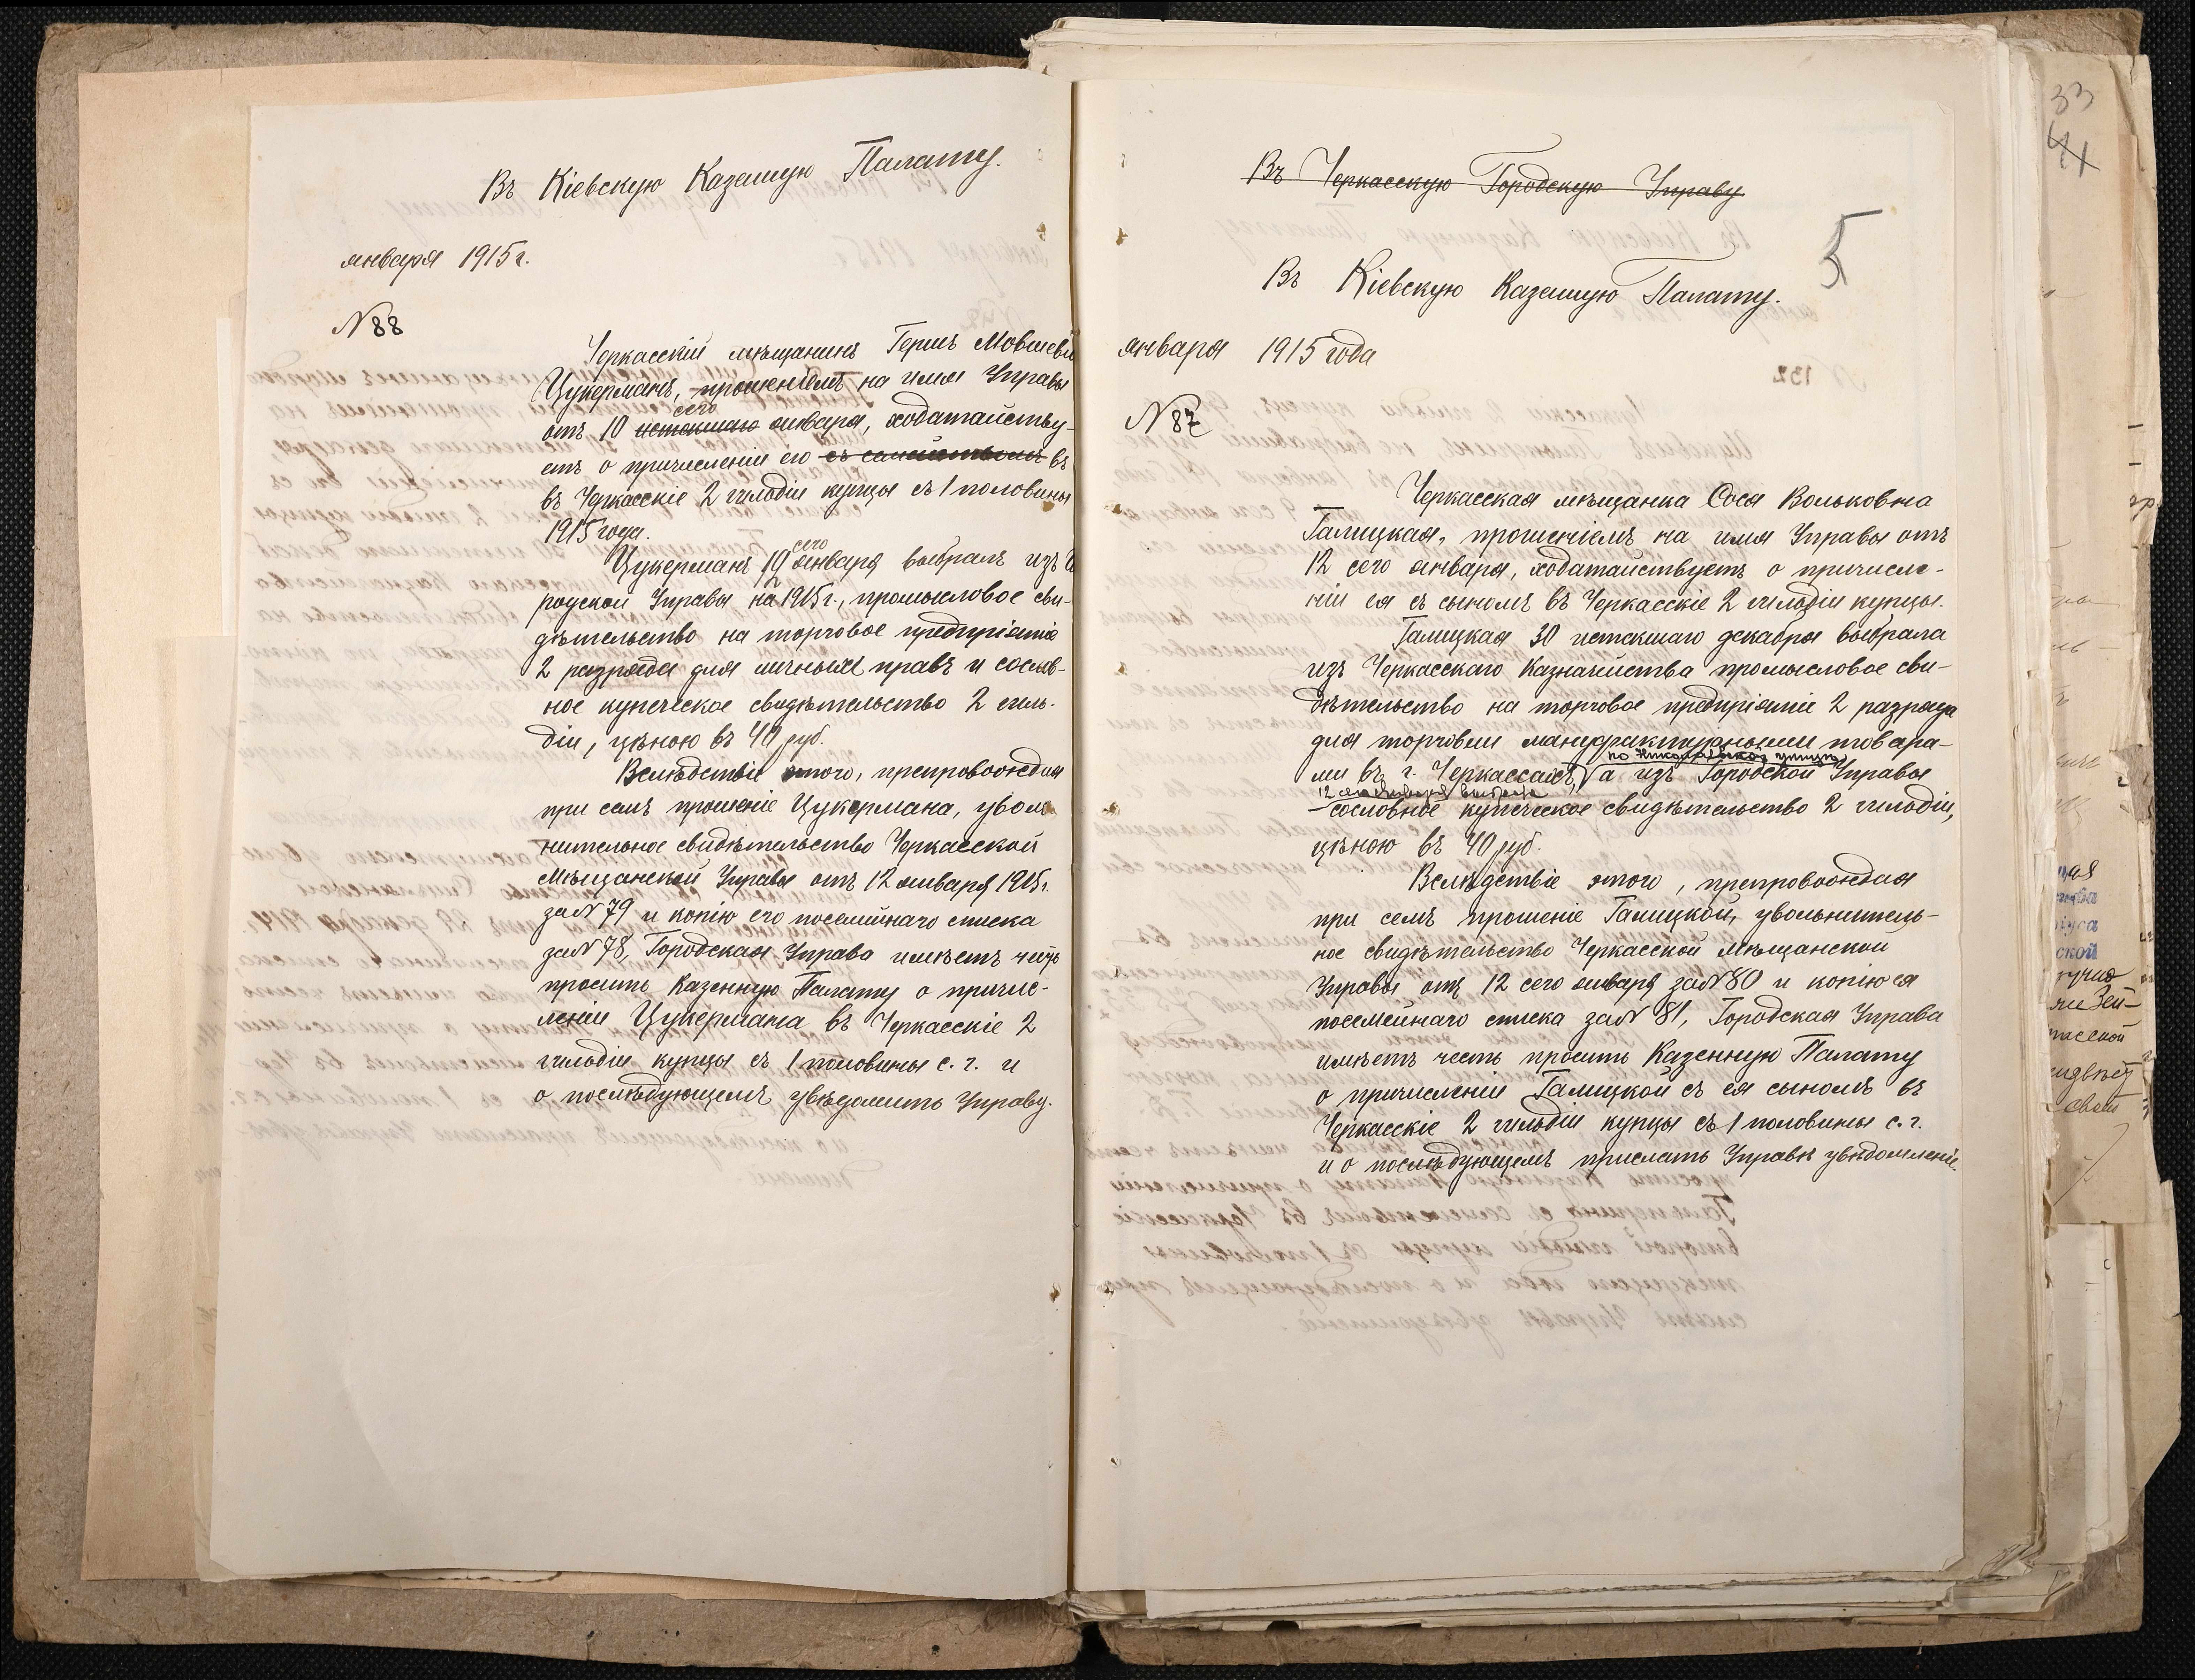 Въ Кіевскую Казенную Палату.
января 1915 г.
№ 88
Черкасскій мѣщанинъ Гершъ Мовшеви
Цукерманъ, прошеніемъ на имя Управы
сего
отъ 10 истекшаго января, ходатайству-
етъ о причисленіи его съ семействомъ въ
въ Черкасскіе 2 гильдіи купцы съ 1 половины
1915 года.
сего
Цукерманъ 19 января выбралъ изъ Го
родской Управы на 1915 г., промысловое сви-
дѣтельство на торговое предпріятіе
2 разряда для личныхъ правъ и сослов-
ное купеческое свидѣтельство 2 гиль-
діи, цѣною въ 40 руб.
Вслѣдствіе этого, препровождая
при семъ прошеніе Цукермана, уволь
нительное свидѣтельство Черкасской
Мѣщанской Управы отъ 12 января 1915 г.
за № 79 и копію его посемейнаго списка
за № 78, Городская Управа имѣетъ честь
просить Казенную Палату о причис-
леніи Цукермана въ Черкасскіе 2
гильдіи купцы съ 1 половины с. г. и
о послѣдующемъ увѣдомить Управу.
Въ Черкасскую Городскую Управу
5
Въ Кіевскую Казенную Палату.
января 1915 года
№ 87
Черкасская мѣщанка Сося Вольковна
Галицкая, прошеніемъ на имя Управы отъ
12 сего января, ходатайствуетъ о причисле-
ніи ея съ сыномъ въ Черкасскіе 2 гильдіи купцы.
Галицкая 30 истекшаго декабря выбрала
изъ Черкасскаго Казначейства промысловое сви-
дѣтельство на торговое предпріятіе 2 разряда
для торговли мануфактурными товара-
по Николаевской улицѣ
ми въ г. Черкассахъ, а изъ Городской Управы
12 сего января выбрала
сословное купеческое свидѣтельство 2 гильдіи,
цѣною въ 40 руб.
Вслѣдствіе этого, препровождая
при семъ прошеніе Галицкой, увольнитель-
ное свидѣтельство Черкасской Мѣщанской
Управы отъ 12 сего января за № 80 и копію ея
посемейнаго списка за № 81, Городская Управа
имѣетъ честь просить Казенную Палату
о причисленіи Галицкой съ ея сыномъ въ
Черкасскіе 2 гильдіи купцы съ 1 половины с. г.
и о послѣдующемъ прислать Управѣ увѣдомленіе.
33